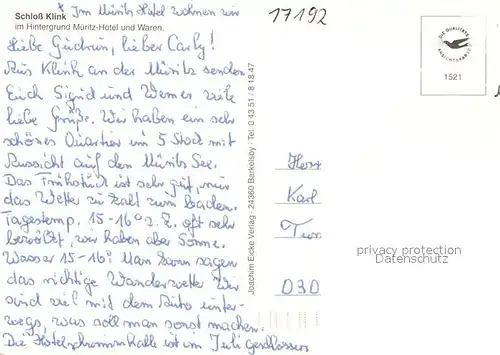 * Im Müritz Hotel wohnen wir
17192
Schloß Klink
im Hintergrund Müritz-Hotel und Waren.
DIE QUALITÄTS ANSICHTSKARTE
1521
Liebe Gudrun, lieber Carly!
Aus Klink an der Müritz senden
Euch Sigrid und Werner viele
liebe Grüße. Wir haben ein sehr
schönes Quartier im 5 Stock mit
Aussicht auf den Müritz See.
Das Frühstück ist sehr gut, nur
das Wetter zu kalt zum baden.
Tagestemp. 15-16° z. Z. oft sehr
bewölkt, wir haben aber Sonne.
Wasser 15-16° Man kann sagen
das richtige Wanderwetter Wir
sind viel mit dem Auto unter-
wegs, was soll man sonst machen.
Die Hotelschwimmhalle ist im Juli geschlossen
Joachim Eicke Verlag · 24360 Barkelsby · Tel. 0 43 51 / 8 18 47
Herr
Karl
D30
privacy protection
Datenschutz